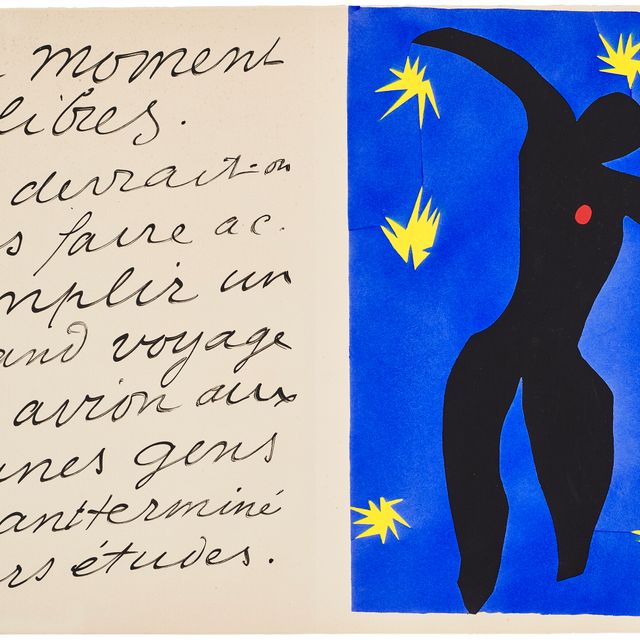 moment
libres.
devrait-on
s faire ac-
mplir un
and voyage
avion aux
unes gens
ant terminé
rs études.